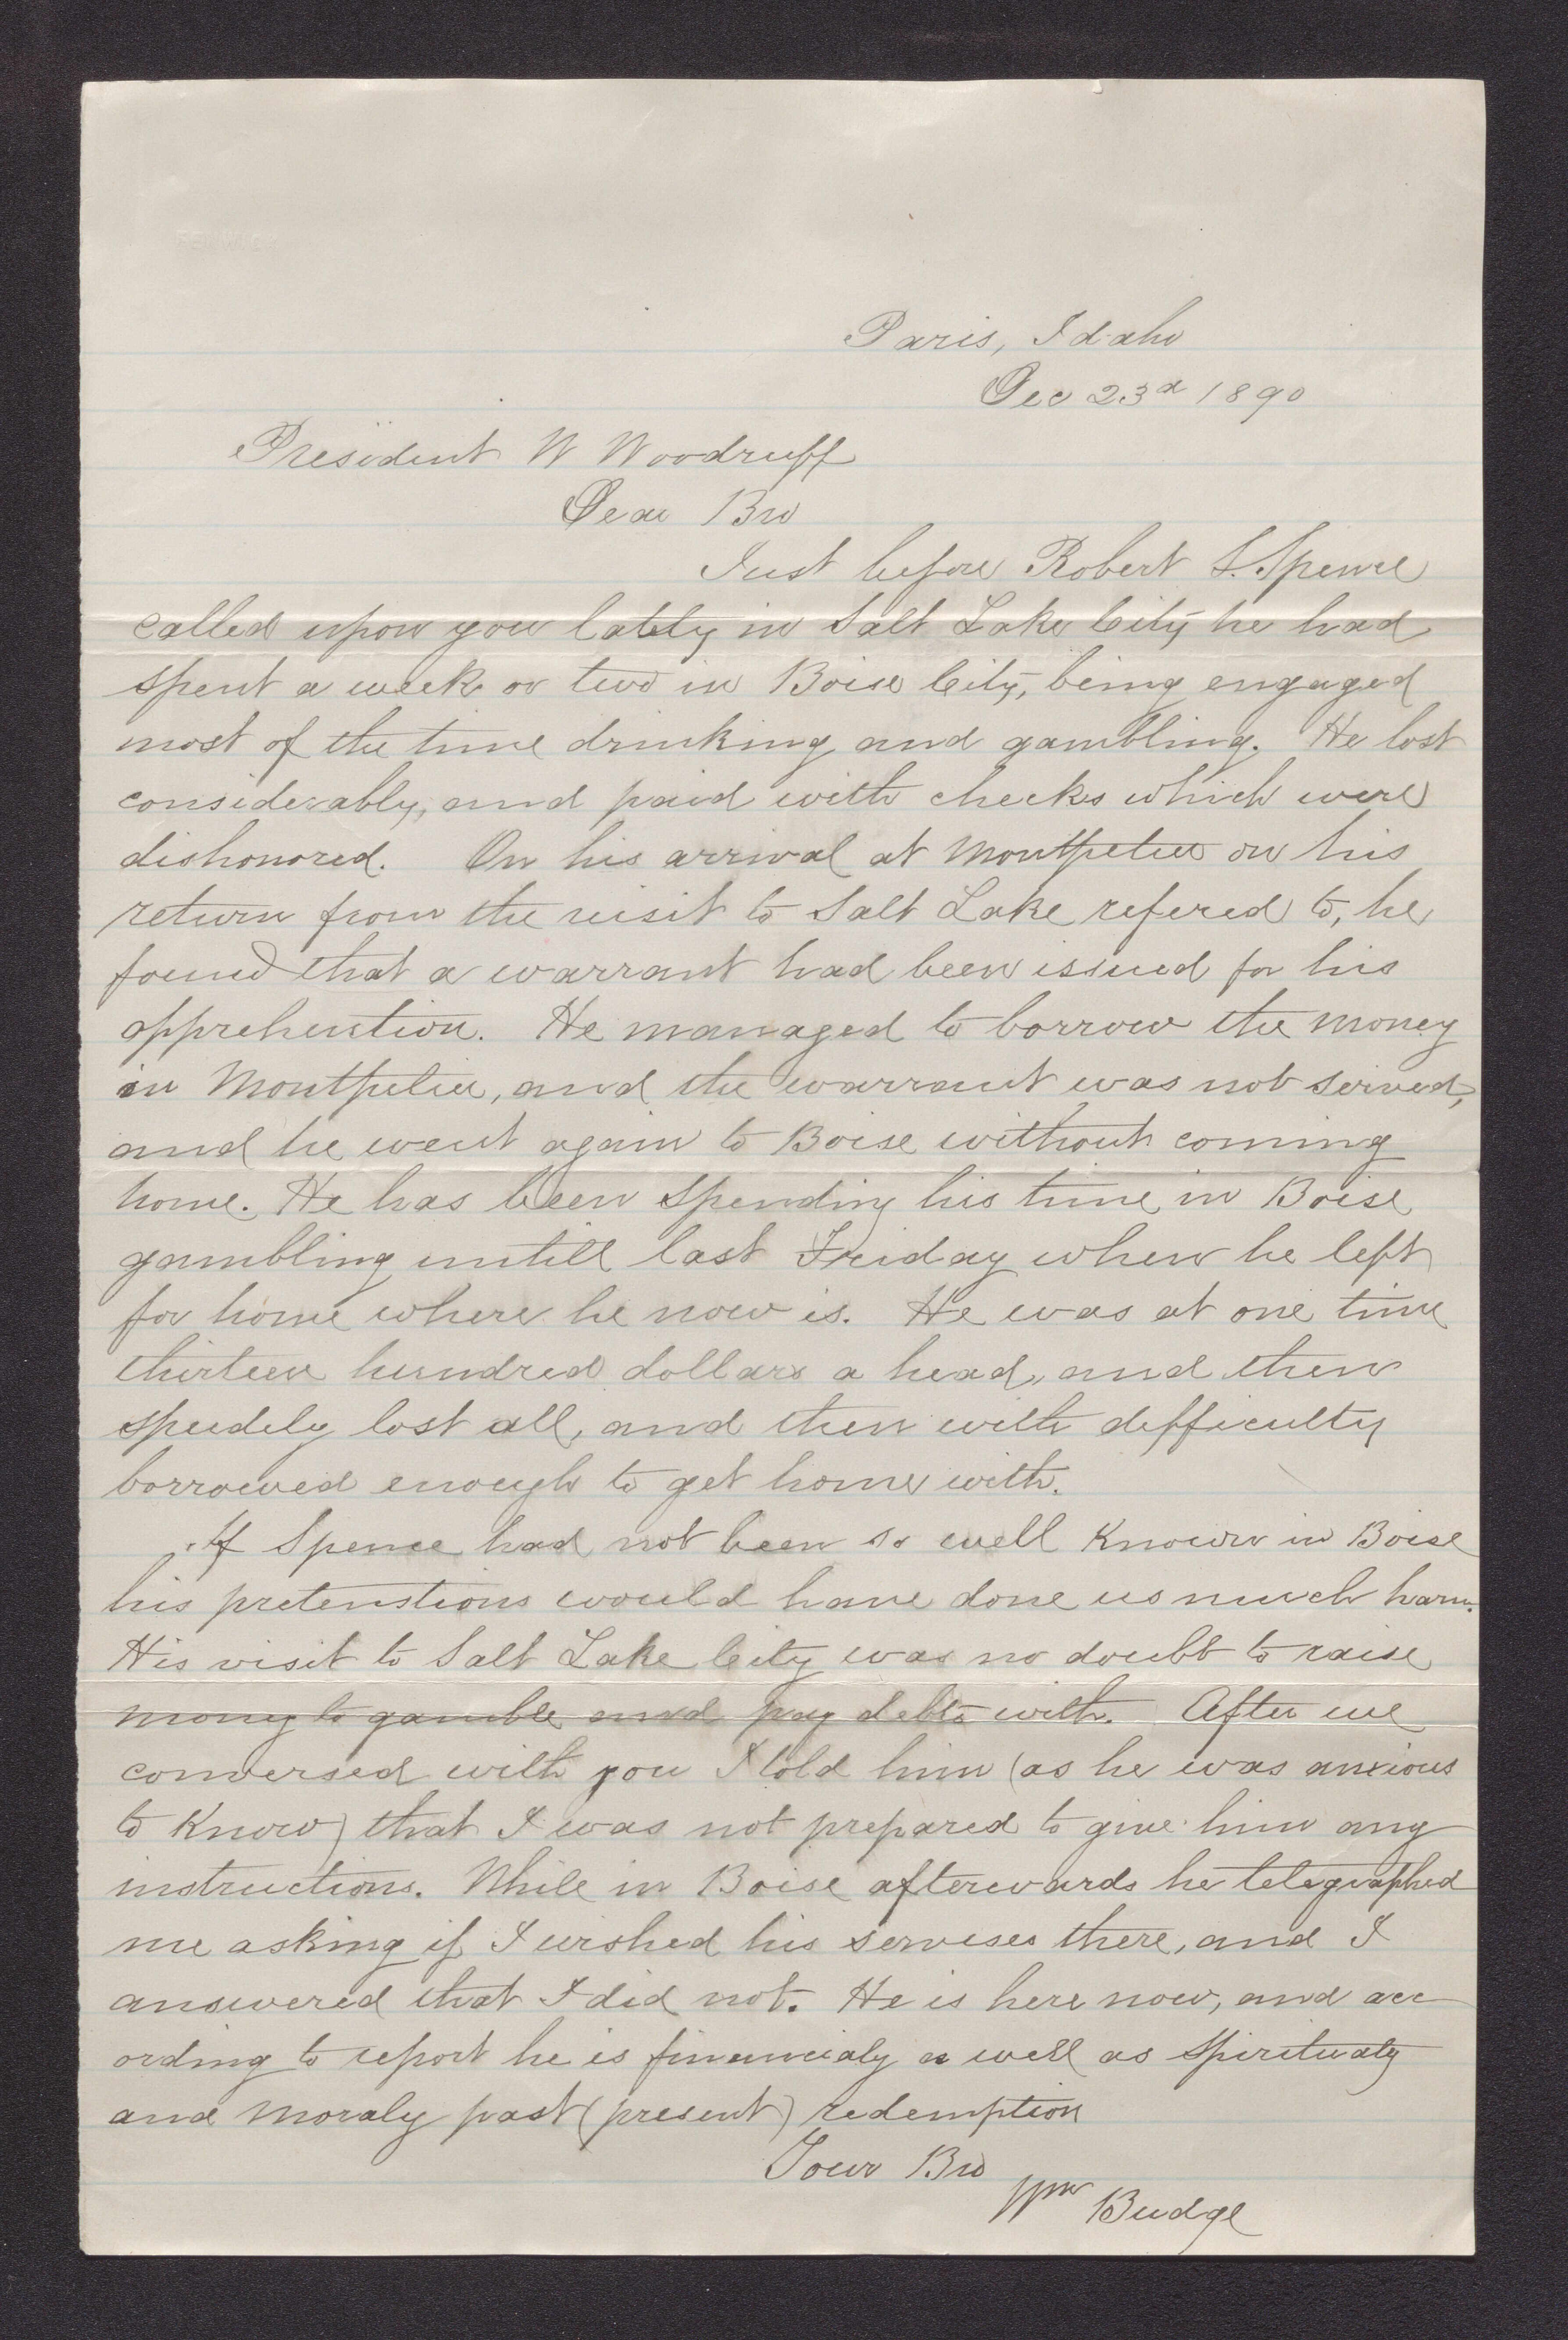 Paris, Idaho
Dec 23d 1890
President W Woodruff
Dear Bro
Just before Robert S. Spence
called upon you lately in Salt Lake City he had
spent a week or two in Boise City, being engaged
most of the time drinking and gambling. He lost
considerably, and paid with checks which were
dishonored. On his arrival at Montpelier on his
return from the visit to Salt Lake refered to, he
found that a warrant had been issued for his
apprehention. He managed to borrow the money
in Montpelier, and the warrant was not served,
and he went again to Boise without coming
home. He has been spending his time in Boise
gambling untill last Friday when he left
for home where he now is. He was at one time
thirteen hundred dollars a head, and then
speedely lost all, and then with difficulty
borrowed enough to get home with.
If Spence had not been so well known in Boise
his pretenstions would have done us much harm.
His visit to Salt Lake City was no doubt to raise
money to gamble and pay debts with. After we
conversed with you I told him (as he was anxious
to know) that I was not prepared to give him any
instructions. While in Boise afterwards he telegraphed
me asking if I wished his servises there, and I
answered that I did not. He is here now, and acc
ording to report he is financialy as well as spiritualy
and moraly past (present) redemption
Your Bro
Wm Budge